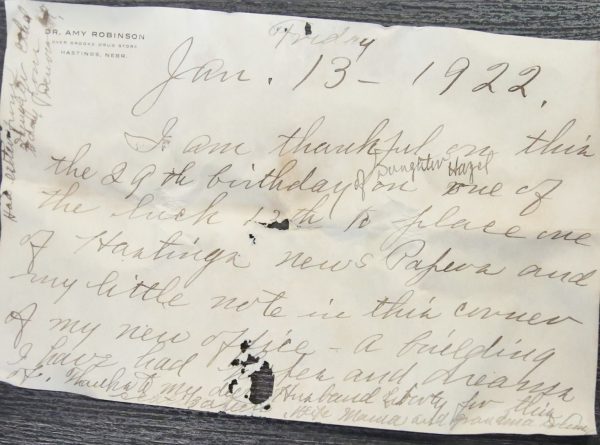 DR. AMY ROBINSON
OVER BROOKS DRUG STORE
HASTINGS, NEBR.
Friday
Jan. 13 - 1922.
I am thankful on this
the 29th birthday of Daughter Hazel on one of
the luck 13th to place one
of Hastings news Papers and
my little note in this corner
of my new office - a building
I have had and dreams
of. Thanks to my Husband for this
Wife Mama and Grandma